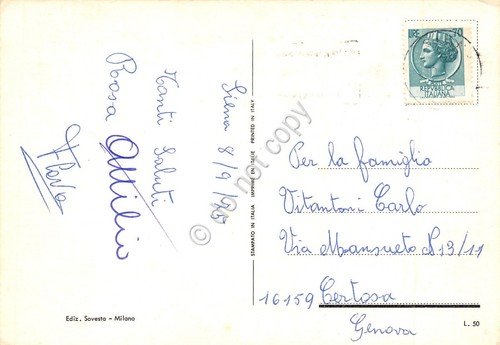 Siena 8/9/75
Tanti Saluti
Rosa Attilio
Flora
Ediz. Sovesta - Milano
STAMPATO IN ITALIA IMPRIMÉ EN ITALIE PRINTED IN ITALY
do not copy
LIRE 70
REPVBBLICA
ITALIANA
Per la famiglia
Vitantoni Carlo
Via Mansueto N 13/11
16159 Certosa
Genova
L. 50